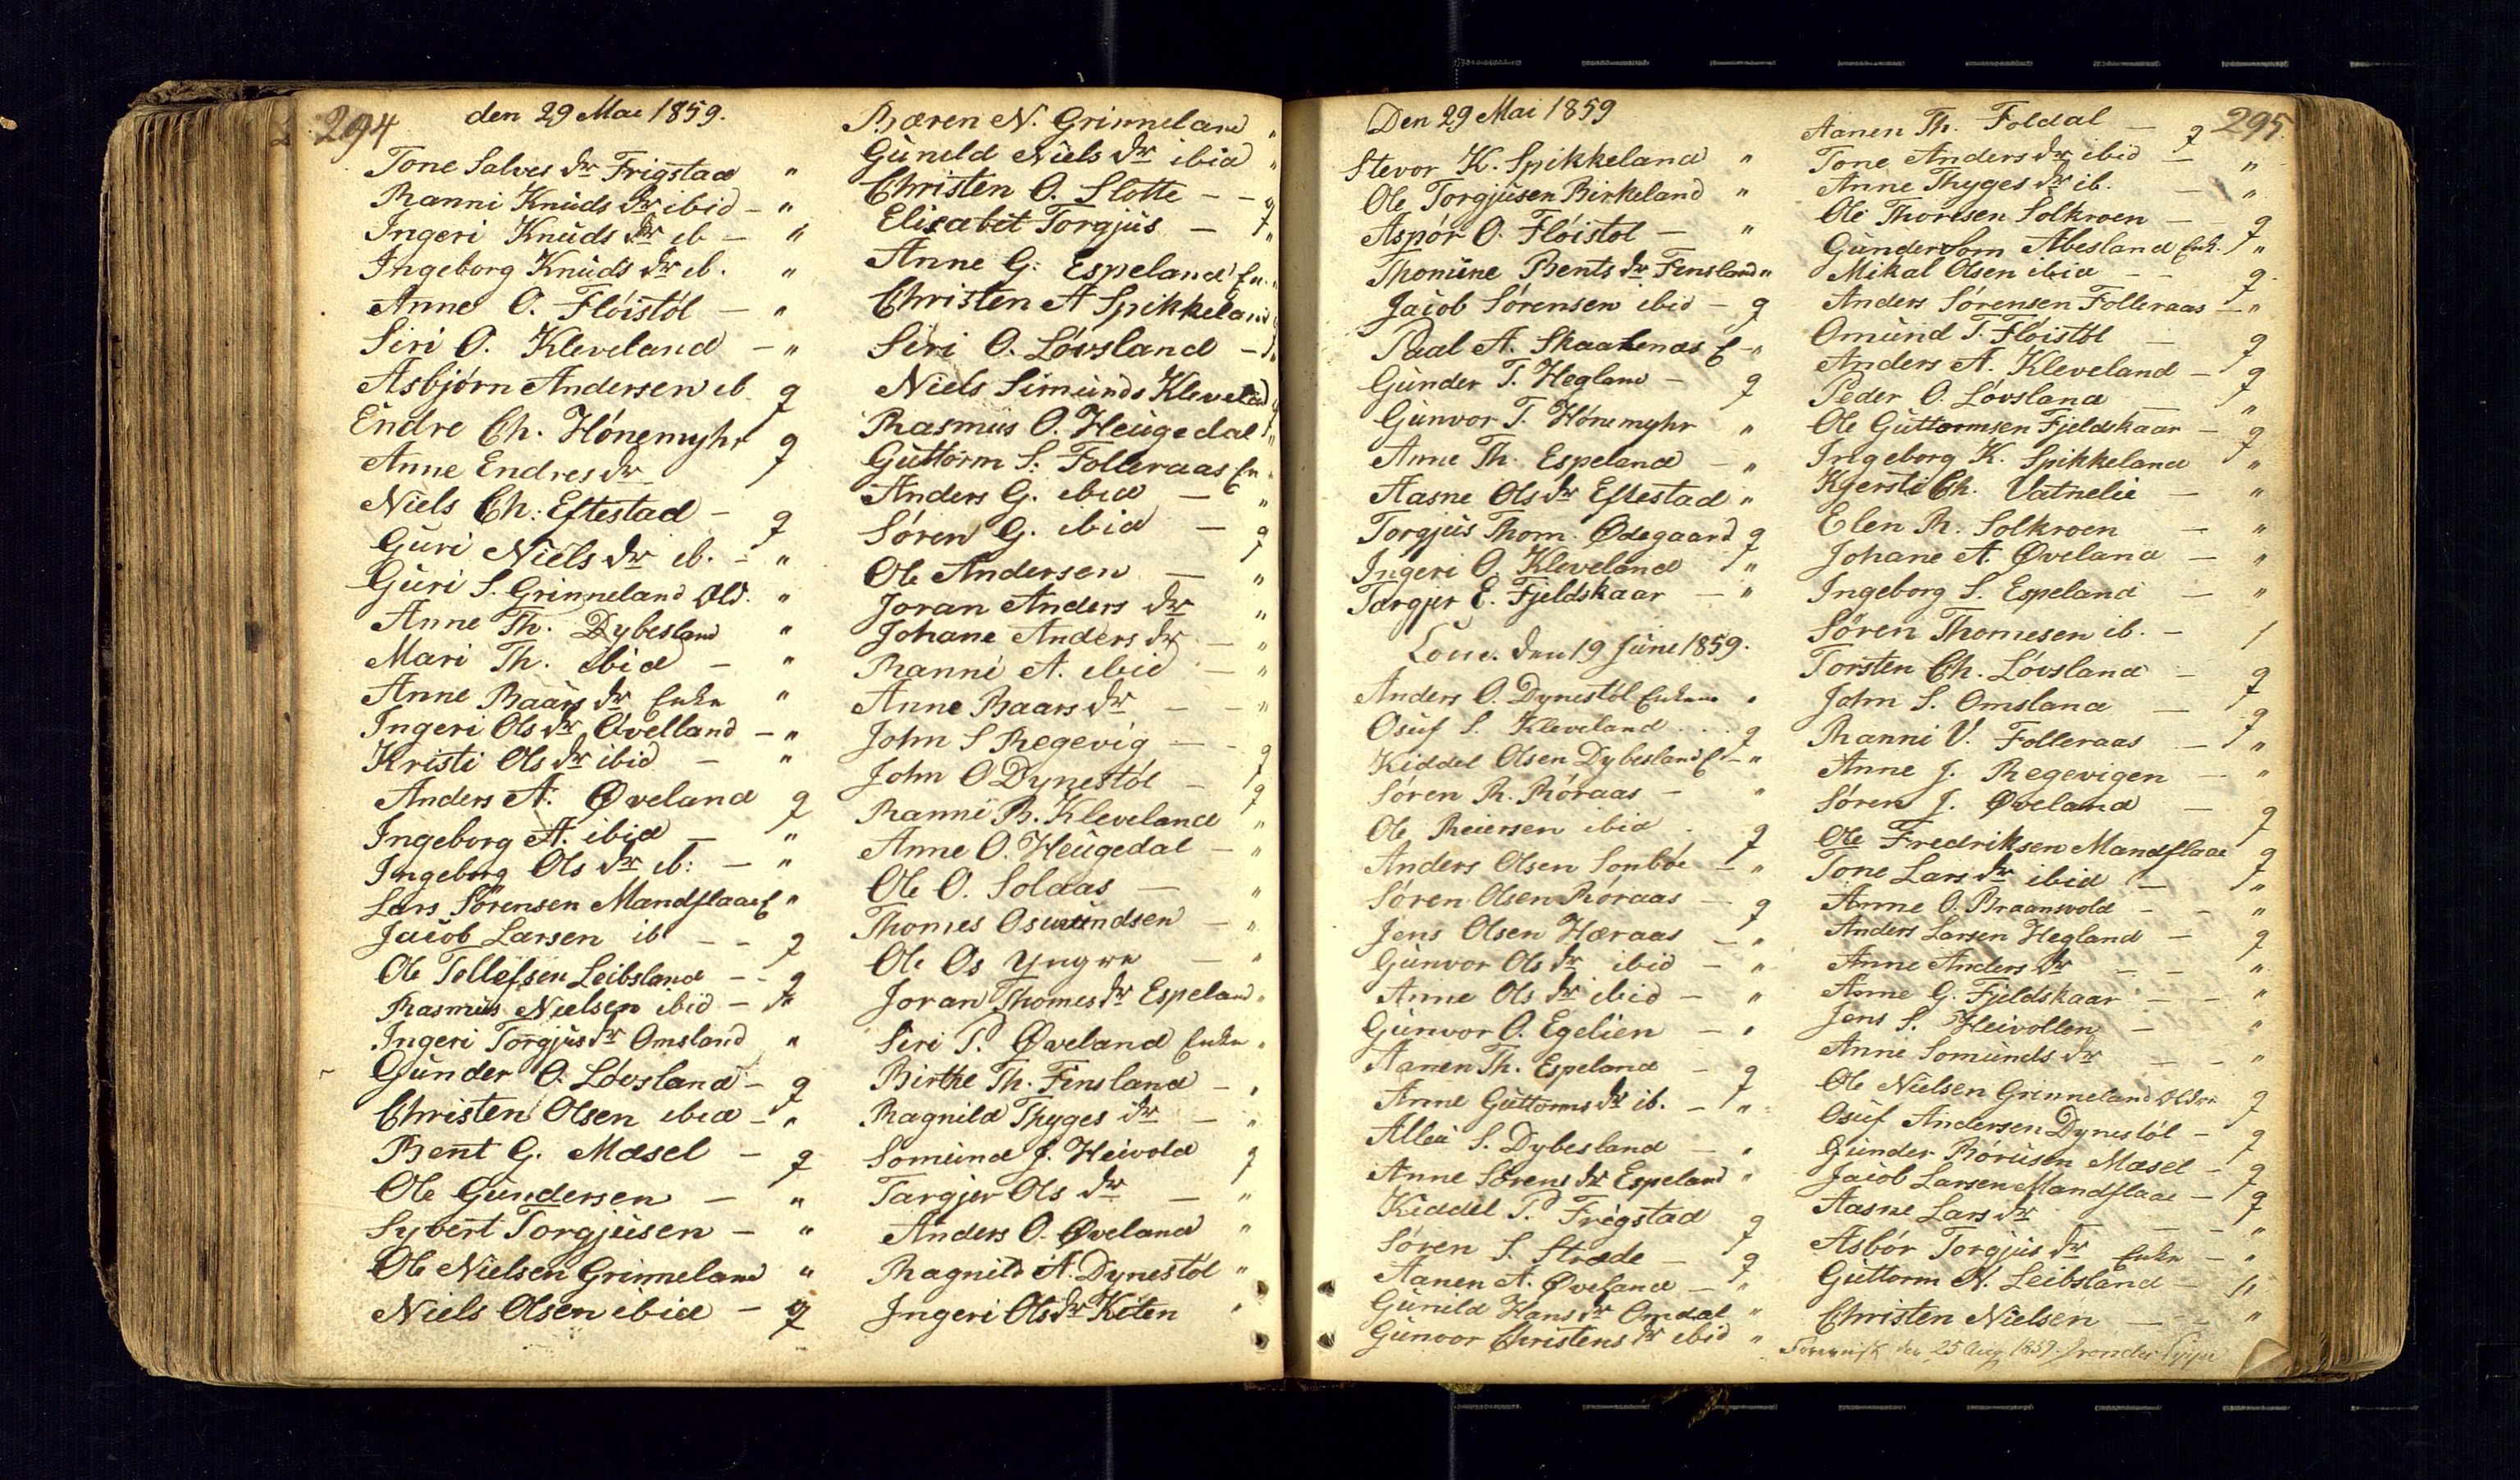 294 den 29 Mai 1859.
Tone Salves dr Frigstad "
Ranni Knuds dr ibid - "
Ingeri Knuds dr ib - "
Ingeborg Knuds dr ib. "
Anne O. Flöistöl - "
Siri O. Kleveland - "
Asbjörn Andersen ib g
Endre Ch. Hönemyhr g
Anne Endres dr
Niels Ch: Eftestad - g
Guri Niels dr ib. - "
Guri S. Grinneland Old. "
Anne Th. Dybesland "
Mari Th. ibid - "
Anne Baars dr Enke "
Ingeri Ols dr Øvelland - "
Kristi Ols dr ibid - "
Anders A. Øveland g
Ingeborg A. ibid - "
Ingeborg Ols dr ib: - "
Lars Sörensen Mandflaae E "
Jacob Larsen ib - - g
Ole Tollefsen Leibsland - - g
Rasmus Nielsen ibid - "
Ingeri Torgjus dr Omsland "
Gunder O. Lövsland - g
Christen Olsen ibid - "
Bent G. Mæsel - g
Ole Gundersen - "
Syvert Torgjusen - "
Ole Nielsen Grinneland "
Niels Olsen ibid - g
Bæren N. Grinneland "
Gunild Niels dr ibid "
Christen O. Slotte - - g
Elisabet Torgjus - "
Anne G. Espeland En. "
Christen A Spikkeland
Siri O. Lövsland - "
Niels Simunds Kleveland
Rasmus O. Heugedal "
Guttorm S. Folleraas En "
Anders G. ibid - "
Sören G. ibid - g
Ole Andersen - "
Joran Anders dr "
Johane Anders dr - "
Ranni A. ibid - "
Anne Baars dr - - "
John S Regevig - - g
John O Dynestöl - g
Ranni B. Kleveland "
Anne O. Heugedal - "
Ole O. Solaas - "
Thomes Osmundsen - "
Ole Os Yngre - "
Joran Thomes dr Espeland "
Siri P. Øveland Enke "
Birthe Th. Finsland - "
Ragnild Thyges dr - "
Somund J. Heivold g
Targjer Ols dr - "
Anders O. Øveland "
Ragnild A. Dynestöl "
Ingeri Ols dr Kiten "
Den 29 Mai 1859
Stevor K. Spikkeland "
Ole Torgjusen Birkeland "
Aspör O. Flöistöl - "
Thomine Bents dr Finsland "
Jacob Sörensen ibid - g
Paal A. Skaatenæs E - "
Gunder T. Hegland - g
Gunvor T. Hönemyhr "
Anne Th. Espeland - "
Aasne Ols dr Eftestad "
Torgjus Thom. Ødegaard g
Ingeri O. Kleveland "
Targjer E. Fjeldskaar - "
den 19 June 1859.
Anders O. Dynestöl Enkem "
Osuf S. Kleveland . . g
Kiddel Olsen Dybesland E - "
Sören R. Röraas - "
Ole Reiersen ibid . g
Anders Olsen Sonböe - "
Sören Olsen Röraas - g
Jens Olsen Hæraas - "
Gunvor Ols dr ibid - "
Anne Ols dr ibid - "
Gunvor O. Egelien - "
Aanen Th. Espeland - g
Anne Guttorms dr ib. - "
Alleu S. Dybesland - "
Anne Sörens dr Espeland "
Kiddel P. Frigstad g
Sören S. Stræde - g
Aanen A. Øveland - "
Gunild Hans dr Omdal "
Gunvor Christens dr ibid "
295.
Aanen Th. Foldal - g
Tone Anders dr ibid - "
Anne Thyges dr ib. - "
Ole Thomesen Solkroen - g
Gunder Som Abesland Enk. "
Mikal Olsen ibid - - g
Anders Sörensen Folleraas - "
Omund T. Flöistöl - g
Anders A. Kleveland - g
Peder O. Lövsland - "
Ole Guttormsen Fjeldskaar - g
Ingeborg K. Spikkeland "
Kjersti Ch. Vatnelie - "
Elen R. Solkroen - "
Johane A. Øveland - "
Ingeborg S. Espeland - "
Sören Thomesen ib. - /
Torsten Ch. Lövsland - g
John S. Omsland - g
Ranni V. Folleraas - "
Anne J. Regevigen - "
Sören J. Øveland - g
Ole Fredriksen Mandflaae g
Tone Lars dr ibid - "
Anne O. Braanvold - - "
Anders Larsen Hegland - g
Anne Anders dr - - "
Anne G. Fjeldskaar - - "
Jens S. Heivollen - "
Anne Somunds dr - - "
Ole Nielsen Grinneland Older g
Osuf Andersen Dynestöl - g
Gunder Börusen Mæsel - g
Jacob Larsen Mandflaae - g
Aasne Lars dr - - "
Asbör Torgjus dr Enke - "
Guttorm N. Leibsland - "
Christen Nielsen - - "
den 25 Aug 1859.